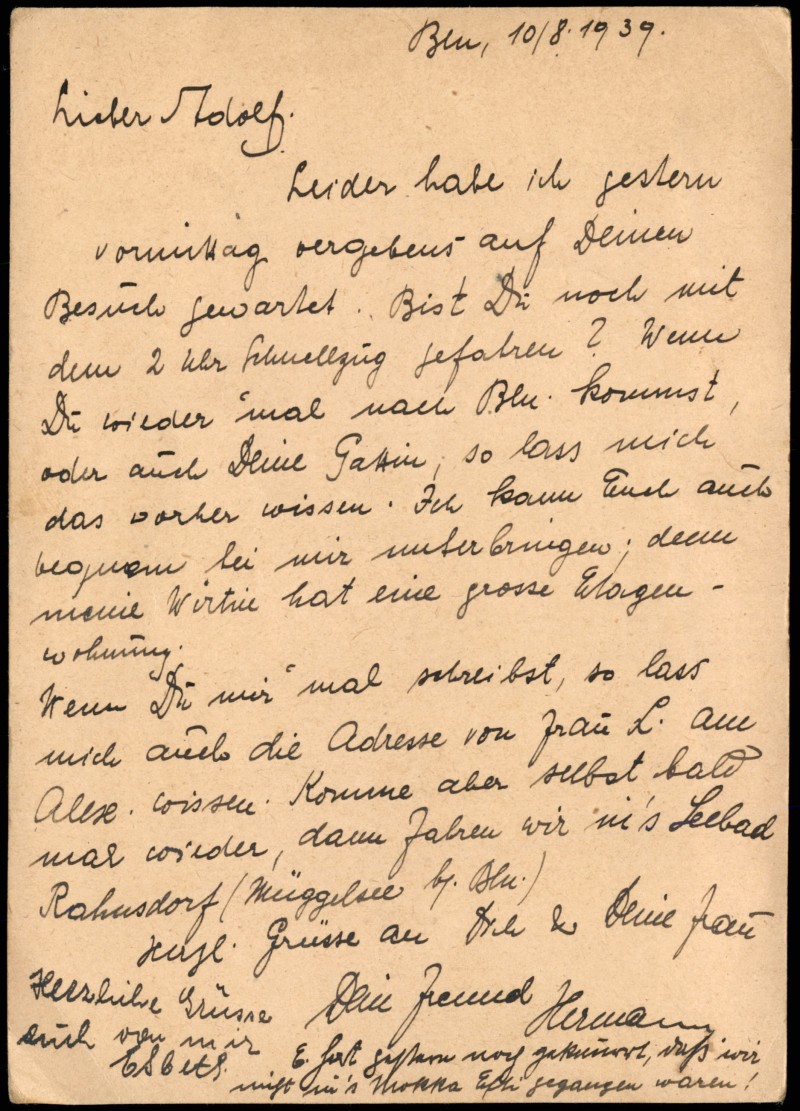 Bln, 10/8.1939.
Lieber Adolf.
Leider habe ich gestern
vormittag vergebens auf Deinen
Besuch gewartet. Bist Du noch mit
dem 2 Uhr Schnellzug gefahren? Wenn
Du wieder 'mal nach Bln. kommst,
oder auch Deine Gattin, so lass mich
das vorher wissen. Ich kann Euch auch
bequem bei mir unterbringen; denn
meine Wirtin hat eine grosse Etagen-
wohnung.
Wenn Du mir 'mal schreibst, so lass
mich auch die Adresse von Frau L. am
Alex. wissen. Komme aber selbst bald
mal wieder, dann fahren wir in's Seebad
Rahnsdorf (Müggelsee b/. Bln.)
Herzl. Grüsse an Dich & Deine Frau
Dein Freund
Hermann
Herzliche Grüsse
auch von mir
E. hat gestern noch geknurrt, daß wir
nicht in's Mokka Efti gegangen waren!